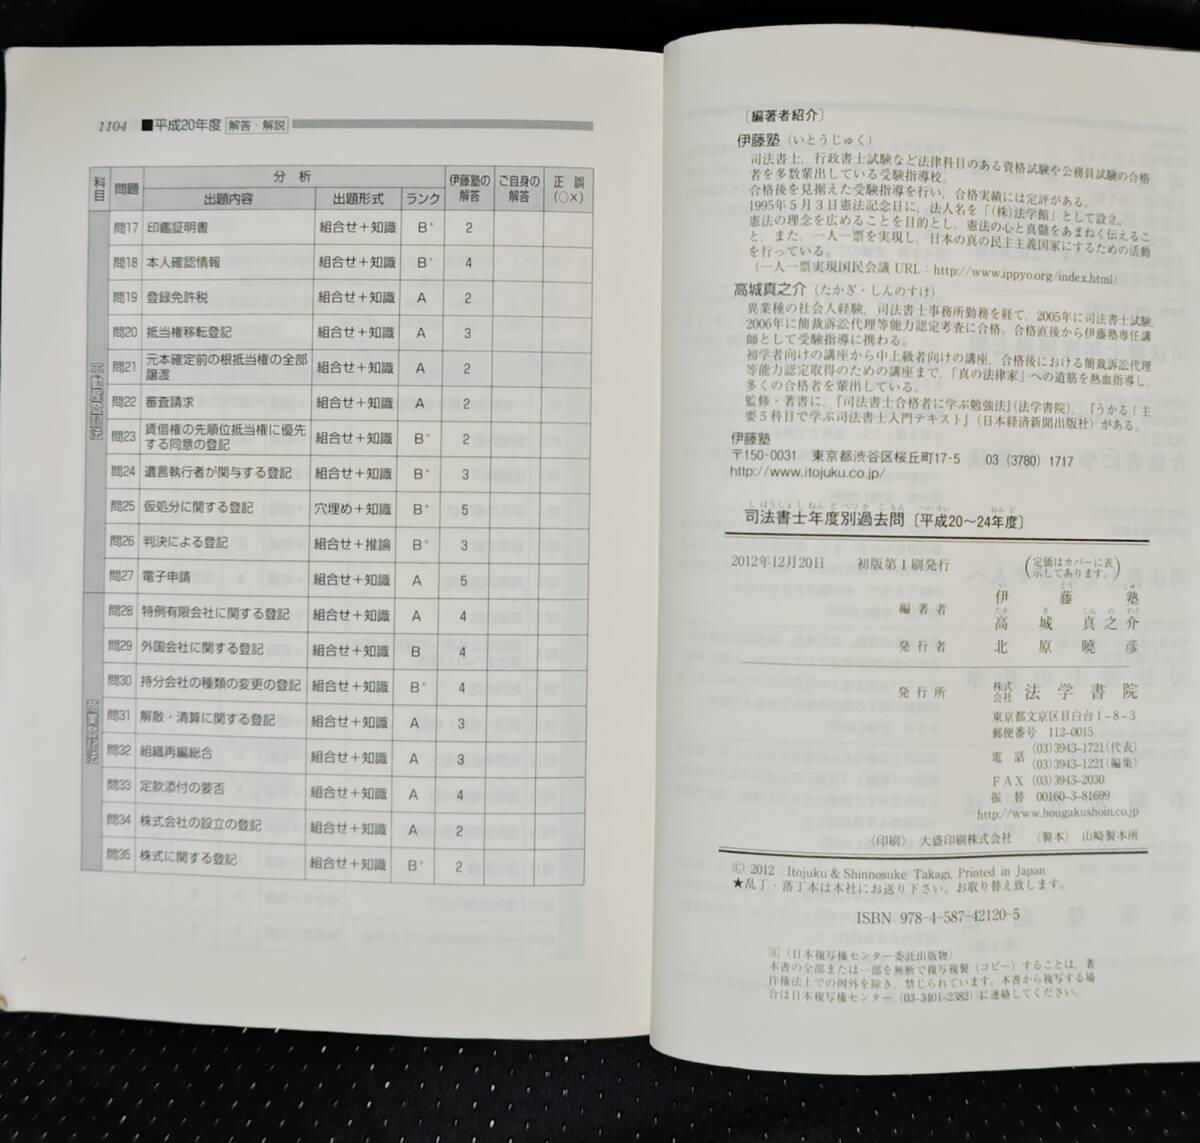 1104 ■平成20年度 解答・解説
科目 問題 分析 伊藤塾の解答 ご自身の解答 正誤(○×)
出題内容 出題形式 ランク
不動産登記法
問17 印鑑証明書 組合せ+知識 B⁺ 2
問18 本人確認情報 組合せ+知識 B⁺ 4
問19 登録免許税 組合せ+知識 A 2
問20 抵当権移転登記 組合せ+知識 A 3
問21 元本確定前の根抵当権の全部譲渡 組合せ+知識 A 2
問22 審査請求 組合せ+知識 A 2
問23 賃借権の先順位抵当権に優先する同意の登記 組合せ+知識 B⁺ 2
問24 遺言執行者が関与する登記 組合せ+知識 B⁺ 3
問25 仮処分に関する登記 穴埋め+知識 B⁺ 5
問26 判決による登記 組合せ+推論 B⁺ 3
問27 電子申請 組合せ+知識 A 5
商業登記法
問28 特例有限会社に関する登記 組合せ+知識 A 4
問29 外国会社に関する登記 組合せ+知識 B 4
問30 持分会社の種類の変更の登記 組合せ+知識 B⁺ 4
問31 解散・清算に関する登記 組合せ+知識 A 3
問32 組織再編総合 組合せ+知識 A 3
問33 定款添付の要否 組合せ+知識 A 4
問34 株式会社の設立の登記 組合せ+知識 A 2
問35 株式に関する登記 組合せ+知識 B⁺ 2
〔編著者紹介〕
伊藤塾(いとうじゅく)
司法書士,行政書士試験など法律科目のある資格試験や公務員試験の合格
者を多数輩出している受験指導校。
合格後を見据えた受験指導を行い,合格実績には定評がある。
1995年5月3日憲法記念日に,法人名を「(株)法学館」として設立。
憲法の理念を広めることを目的とし,憲法の心と真髄をあまねく伝えるこ
と,また,一人一票を実現し,日本の真の民主主義国家にするための活動
を行っている。
(一人一票実現国民会議 URL:http://www.ippyo.org/index.html)
高城真之介(たかぎ・しんのすけ)
異業種の社会人経験,司法書士事務所勤務を経て,2005年に司法書士試験,
2006年に簡裁訴訟代理等能力認定考査に合格。合格直後から伊藤塾専任講
師として受験指導に携わる。
初学者向けの講座から中上級者向けの講座,合格後における簡裁訴訟代理
等能力認定取得のための講座まで,「真の法律家」への道筋を熱血指導し,
多くの合格者を輩出している。
監修・著書に,『司法書士合格者に学ぶ勉強法』(法学書院),『うかる!主
要5科目で学ぶ司法書士入門テキスト』(日本経済新聞出版社)がある。
伊藤塾
〒150-0031 東京都渋谷区桜丘町17-5 03(3780)1717
http://www.itojuku.co.jp/
しほうしょしねんどべつかこもん へいせい ねんど
司法書士年度別過去問〔平成20~24年度〕
2012年12月20日 初版第1刷発行 (定価はカバーに表示してあります。)
い とう じゅく
編著者 伊藤塾
たか ぎ しん の すけ
高城真之介
発行者 北原暁彦
発行所 株式会社 法学書院
東京都文京区目白台1-8-3
郵便番号 112-0015
電話 (03)3943-1721(代表)
(03)3943-1221(編集)
FAX (03)3943-2030
振替 00160-3-81699
http://www.hougakushoin.co.jp
〈印刷〉 大盛印刷株式会社 〈製本〉 山崎製本所
© 2012 Itojuku & Shinnosuke Takagi, Printed in Japan
★乱丁・落丁本は本社にお送り下さい。お取り替え致します。
ISBN 978-4-587-42120-5
R〈日本複写権センター委託出版物〉
本書の全部または一部を無断で複写複製(コピー)することは,著
作権法上での例外を除き,禁じられています。本書から複写する場
合は日本複写権センター(03-3401-2382)に連絡してください。